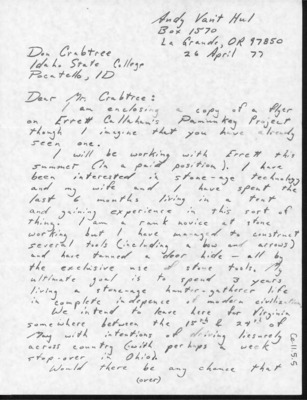 Andy Van't Hul
Box 1570
La Grande, OR 97850
26 April 77
Don Crabtree
Idaho State College
Pocatello, ID
Dear Mr. Crabtree:
I am enclosing a copy of a flyer
on Errett Callahan's Pamunkey Project
though I imagine that you have already
seen one.
I will be working with Errett this
summer (in a paid position). I have
been interested in stone-age technology
and my wife and I have spent the
last 6 months living in a tent
and gaining experience in this sort of
thing. I am a rank novice at stone
working but I have managed to construct
several tools (including a bow and arrows)
and have tanned a deer hide - all by
the exclusive use of stone tools. My
ultimate goal is to spend 3 years
living stone-age hunter-gatherer life
in complete indepence of modern civilization.
We intend to leave here for Virginia
somewhere between the 15th & 24th of
May with intentions of driving liesurely
across country (with perhaps a week
stop-over in Ohio).
Would there be any chance that
(over)